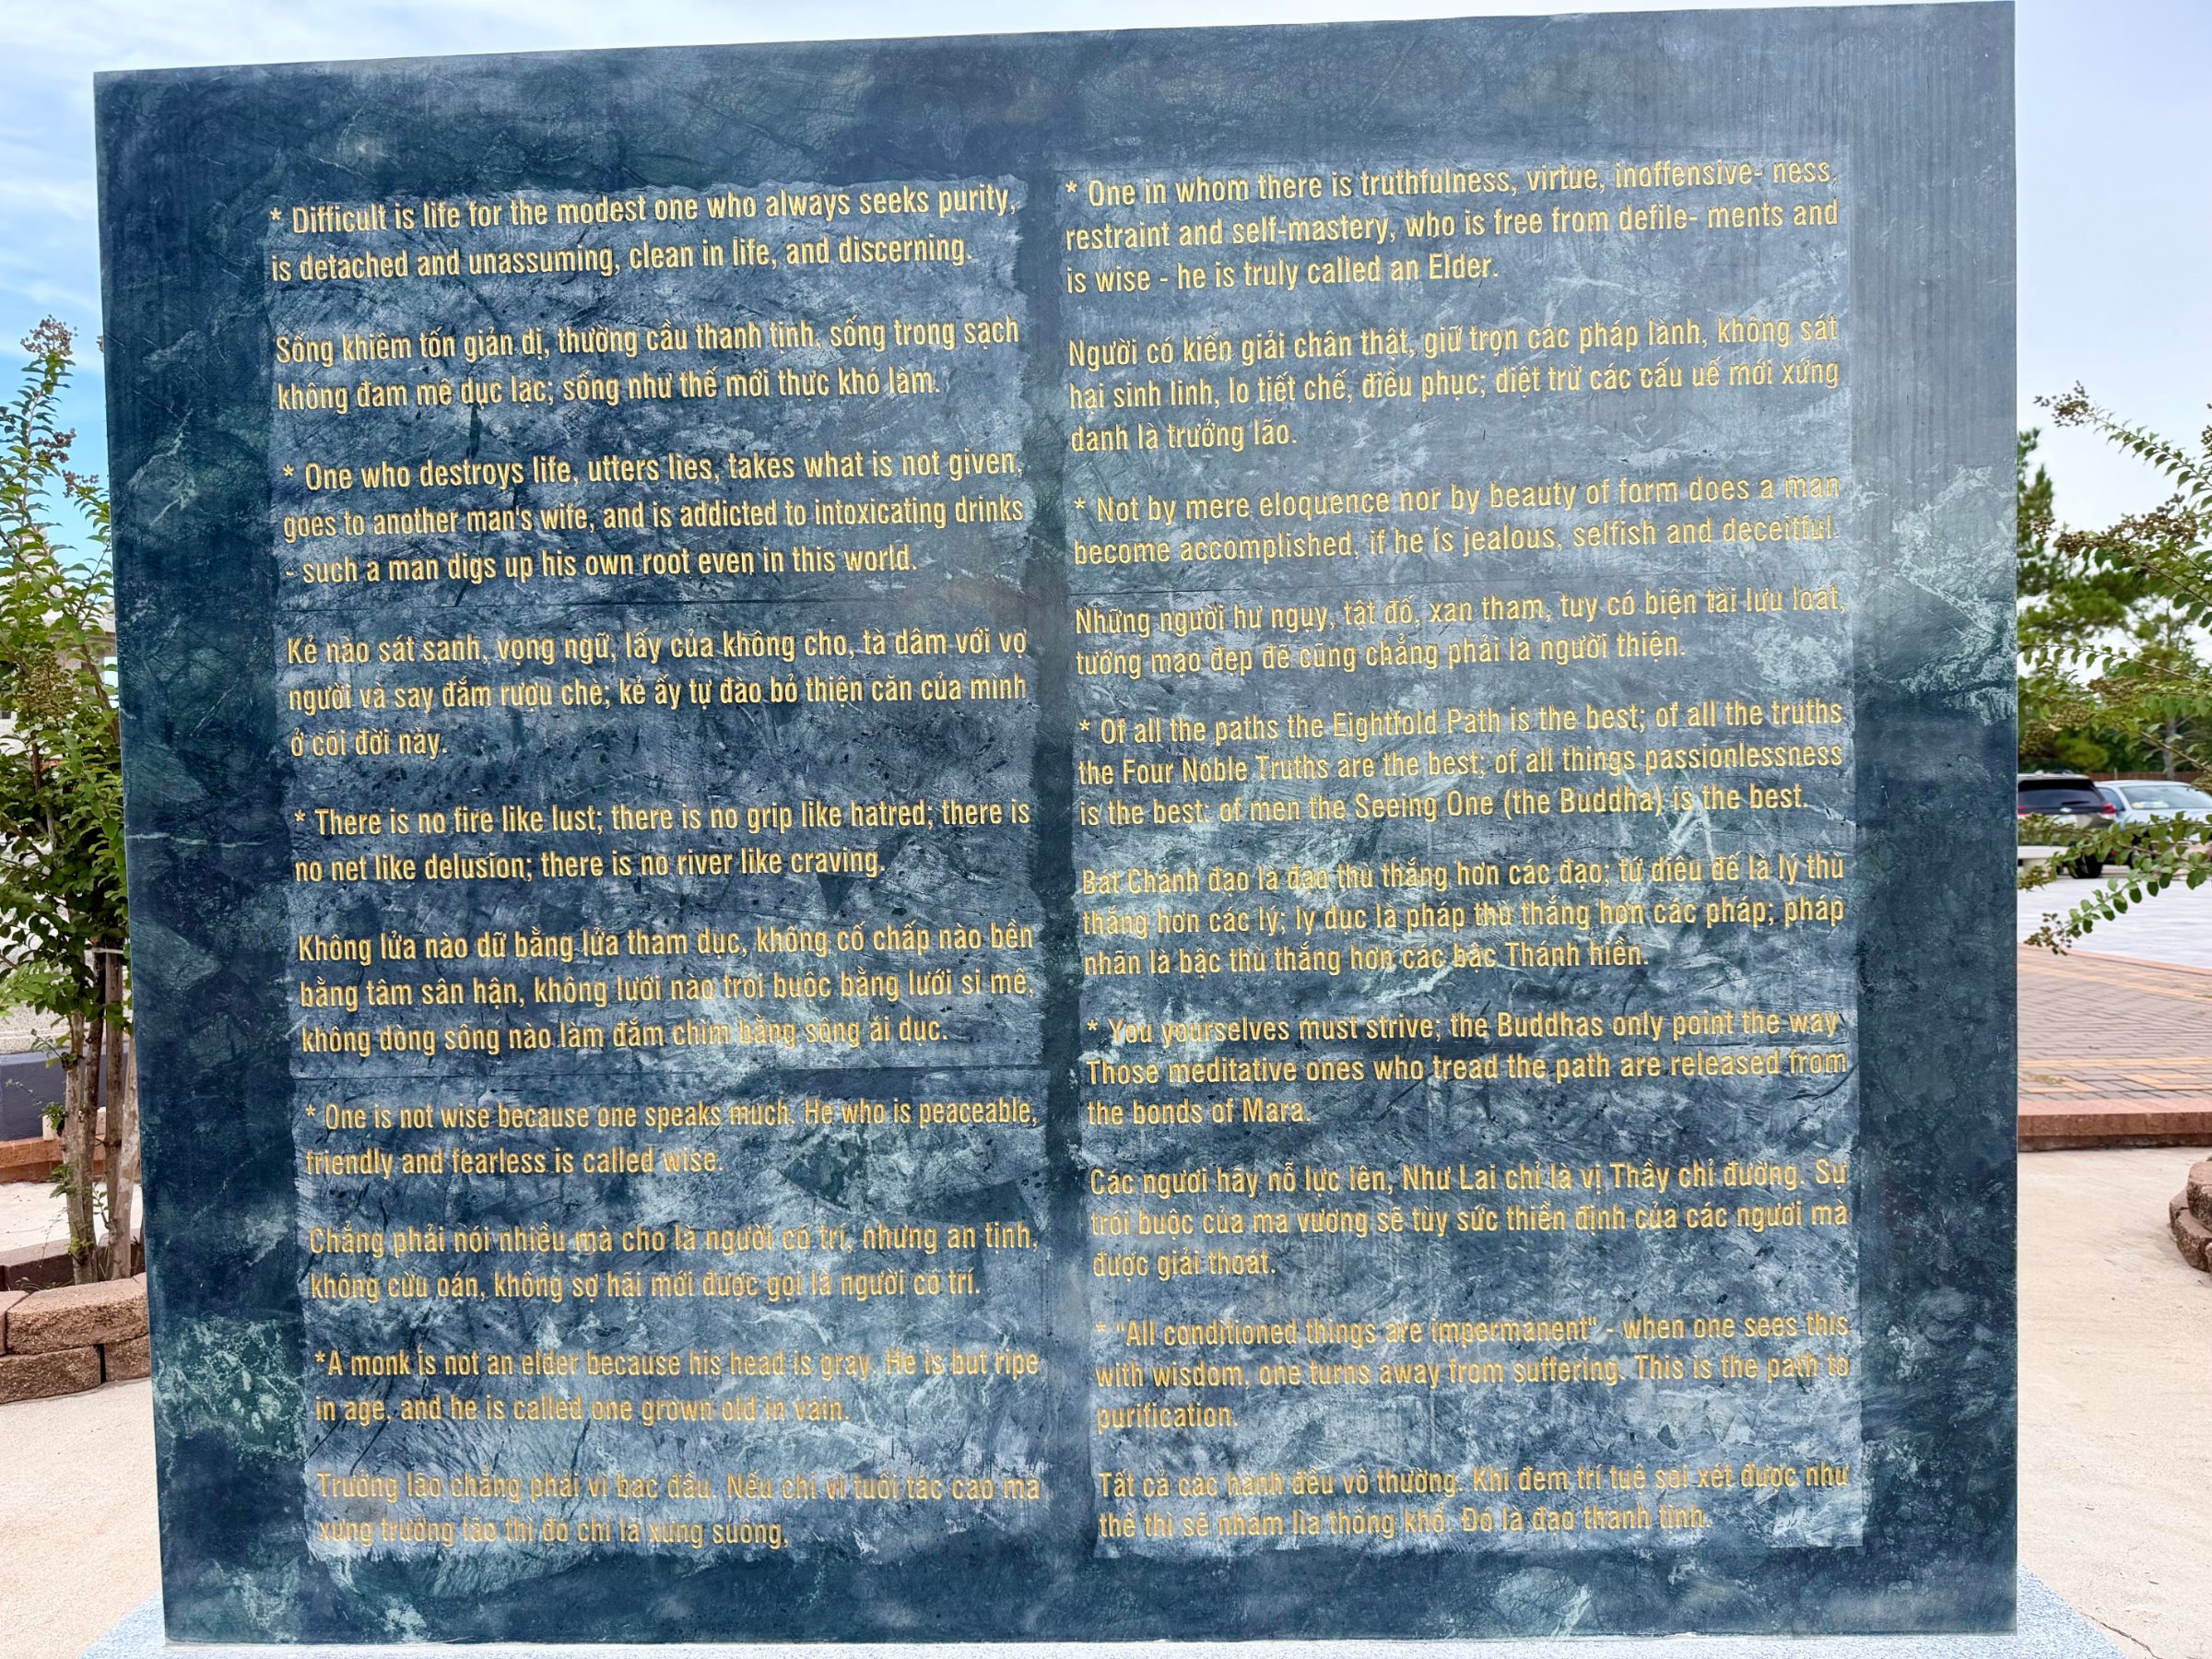 * Difficult is life for the modest one who always seeks purity,
is detached and unassuming, clean in life, and discerning.
Sống khiêm tốn giản dị, thường cầu thanh tịnh, sống trong sạch
không đam mê dục lạc; sống như thế mới thực khó làm.
* One who destroys life, utters lies, takes what is not given,
goes to another man's wife, and is addicted to intoxicating drinks
- such a man digs up his own root even in this world.
Kẻ nào sát sanh, vọng ngữ, lấy của không cho, tà dâm với vợ
người và say đắm rượu chè; kẻ ấy tự đào bỏ thiện căn của mình
ở cõi đời này.
* There is no fire like lust; there is no grip like hatred; there is
no net like delusion; there is no river like craving.
Không lửa nào dữ bằng lửa tham dục, không cố chấp nào bền
bằng tâm sân hận, không lưới nào trói buộc bằng lưới si mê,
không dòng sông nào làm đắm chìm bằng sông ái dục.
* One is not wise because one speaks much. He who is peaceable,
friendly and fearless is called wise.
Chẳng phải nói nhiều mà cho là người có trí, nhưng an tịnh,
không cừu oán, không sợ hãi mới được gọi là người có trí.
*A monk is not an elder because his head is gray. He is but ripe
in age, and he is called one grown old in vain.
Trưởng lão chẳng phải vì bạc đầu. Nếu chỉ vì tuổi tác cao mà
xưng trưởng lão thì đó chỉ là xưng suông,
* One in whom there is truthfulness, virtue, inoffensive- ness,
restraint and self-mastery, who is free from defile- ments and
is wise - he is truly called an Elder.
Người có kiến giải chân thật, giữ trọn các pháp lành, không sát
hại sinh linh, lo tiết chế, điều phục; diệt trừ các cấu uế mới xứng
danh là trưởng lão.
* Not by mere eloquence nor by beauty of form does a man
become accomplished, if he is jealous, selfish and deceitful.
Những người hư ngụy, tật đố, xan tham, tuy có biện tài lưu loát,
tướng mạo đẹp đẽ cũng chẳng phải là người thiện.
* Of all the paths the Eightfold Path is the best; of all the truths
the Four Noble Truths are the best; of all things passionlessness
is the best: of men the Seeing One (the Buddha) is the best.
Bát Chánh đạo là đạo thù thắng hơn các đạo; tứ diệu đế là lý thù
thắng hơn các lý; ly dục là pháp thù thắng hơn các pháp; pháp
nhãn là bậc thù thắng hơn các bậc Thánh hiền.
* You yourselves must strive; the Buddhas only point the way
Those meditative ones who tread the path are released from
the bonds of Mara.
Các ngươi hãy nỗ lực lên, Như Lai chỉ là vị Thầy chỉ đường. Sự
trói buộc của ma vương sẽ tùy sức thiền định của các ngươi mà
được giải thoát.
* "All conditioned things are impermanent" - when one sees this
with wisdom, one turns away from suffering. This is the path to
purification.
Tất cả các hành đều vô thường. Khi đem trí tuệ soi xét được như
thế thì sẽ nhàm lìa thống khổ. Đó là đạo thanh tịnh.